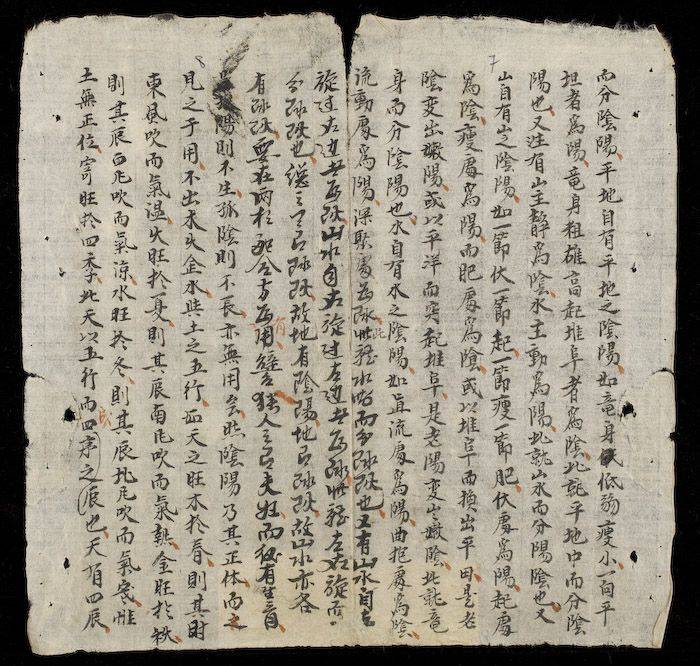 而分陰陽平地自有平地之陰陽如竜身低弱瘦小一向平
坦者爲陽竜身粗雄高起堆阜者爲陰此就平地中而分陰
陽也又注有山主靜爲陰水主動爲陽此就山水而分陽陰也又
山自有山之陰陽如一節伏一節起一節瘦一節肥伏處爲陽起處
爲陰瘦處爲陽而肥處爲陰或以堆阜而換出平田是老
陰変出嫩陽或以平洋而突起堆阜是老陽变出嫩陰此就竜
身而分陰陽也水自有水之陰陽如直流處爲陽曲抱處爲陰
流動處爲陽深聚處为水而分也又有山水自右
旋过左边者为山水自左旋过右边者为左右旋而
分也總之有故地有陰陽地有故山水亦各
有要在兩相配合方为用譬猶人之有夫妇而後有生育
陽則不生孤陰則不長亦無用矣然陰陽乃其正体而之
見之于用不出木火金水與土之五行如天之旺木於春則其时
東風吹而氣温火旺於夏則其辰南凡吹而氣熱金旺於秋
則其辰西凡吹而氣凉水旺於冬則其辰北凡吹而氣寒惟
土無正位寄旺於四季此天以五行而四序之辰也天有四辰